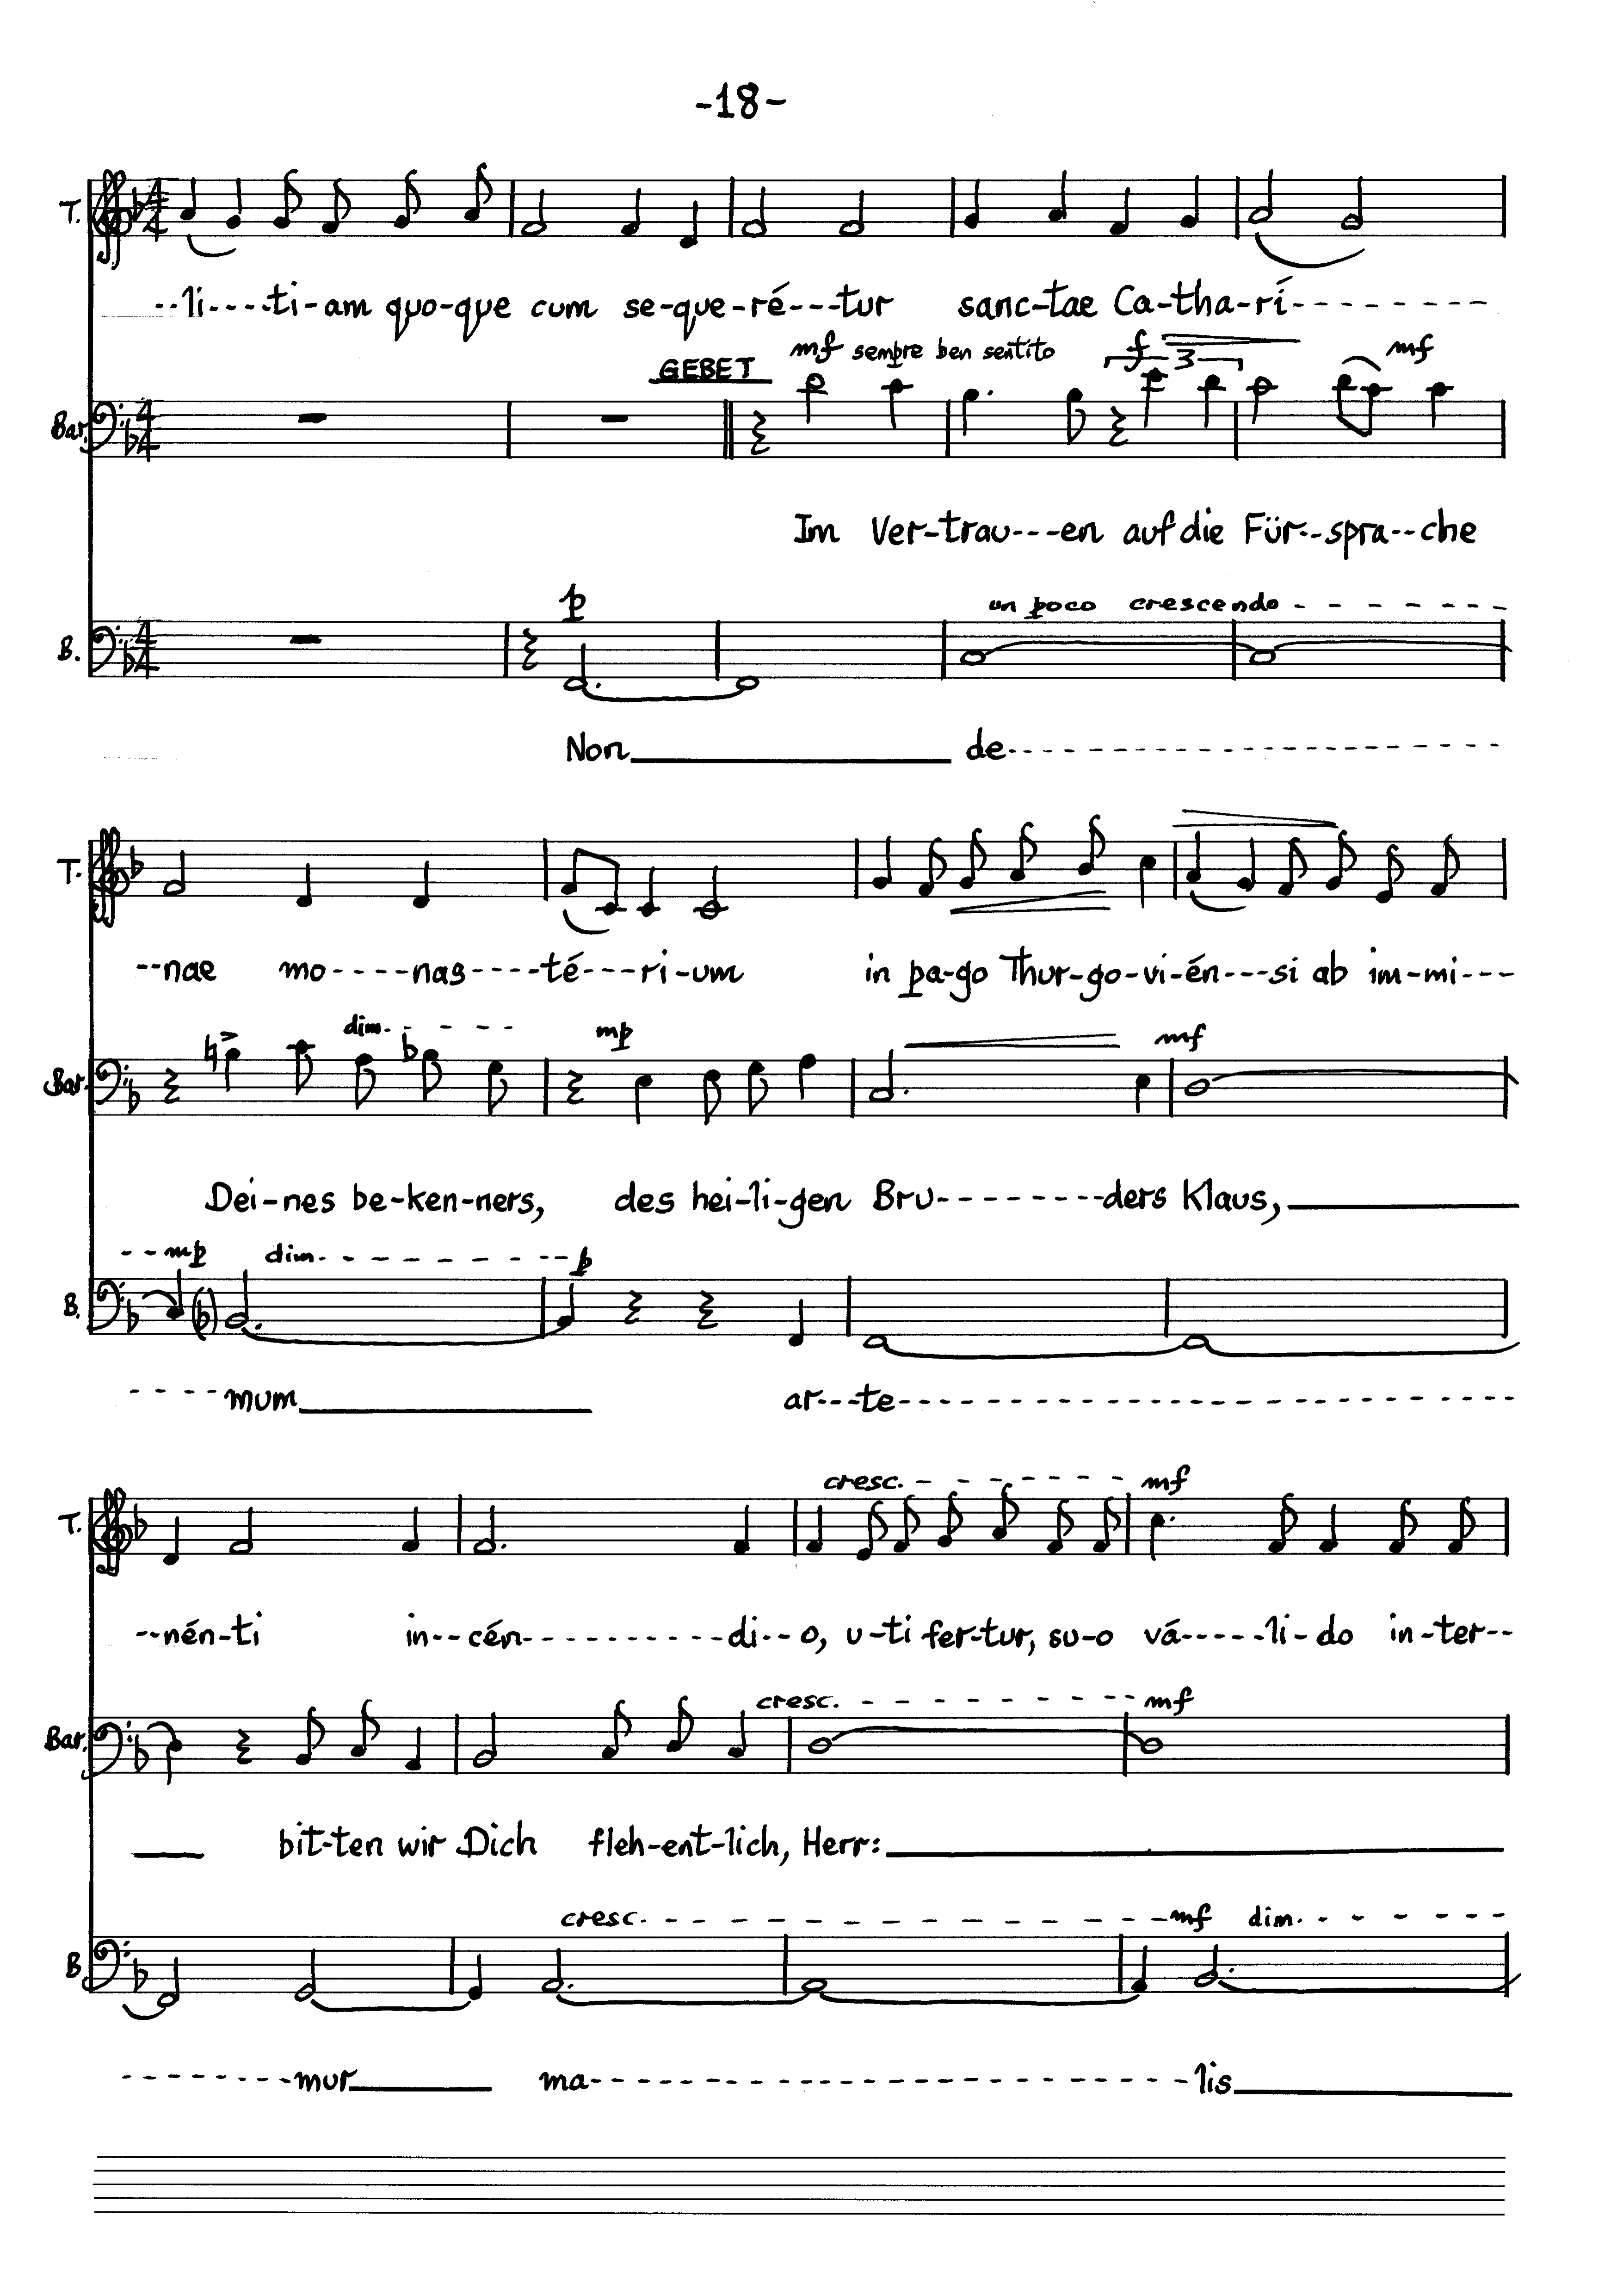 -18-
T.
--li----ti-am quo-que cum se-que-ré---tur sanc-tae Ca-tha-rí--------
GEBET mf sempre ben sentito f 3 mf
Bar. 4 4
Im Ver-trau---en auf die Für--spra--che
p un poco crescendo- - - - - -
B. 4 4
Non de-----------------
T.
--nae mo----nas----té---ri-um in pa-go Thur-go-vi-én---si ab im-mi---
dim. - - - - mp mf
Bar.
Dei-nes be-ken-ners, des hei-li-gen Bru--------ders Klaus,
--mp dim. - - - - - - --p
B.
----mum ar---te-----------------------
cresc. - - - - - - mf
T.
--nén-ti in--cén----------di--o, u-ti fer-tur, su-o vá-----li-do in-ter--
cresc. - - - - - - -- mf
Bar.
bit-ten wir Dich fleh-ent-lich, Herr:
cresc. - - - - - - - - - - --mf dim. - - - - -
B.
--------mur ma----------------------lis